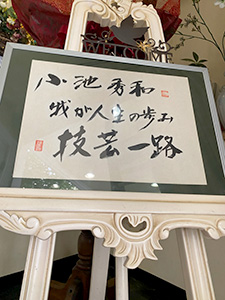 WELCOME
小池秀和
我が人生の歩み
技芸一路